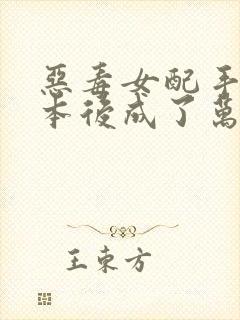 惡毒女配手
本後成了萬
王東方